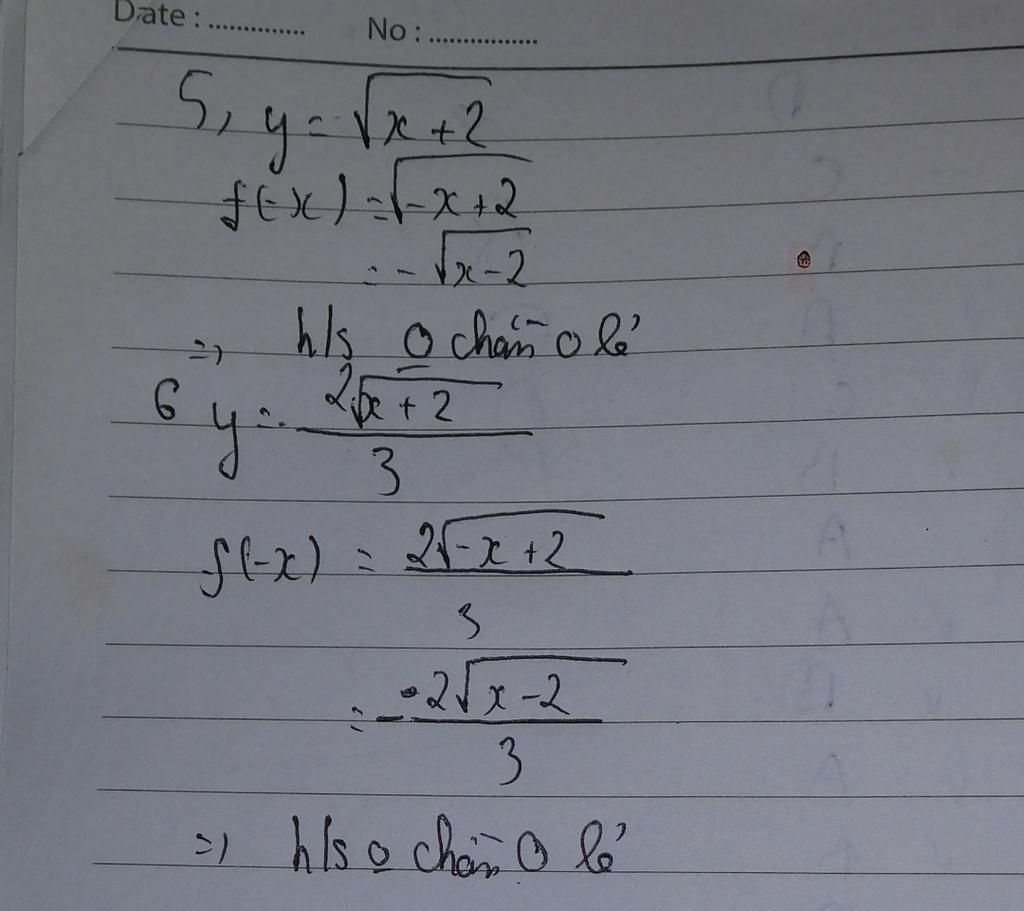 Date : .............. No : ................
5, y = √(x+2)
f(-x) = √(-x+2)
= -√(x-2)
=> h/s O chẵn O lẻ
6 y = 2√(x+2) / 3
f(-x) = 2√(-x+2) / 3
= -2√(x-2) / 3
=> h/s O chẵn O lẻ